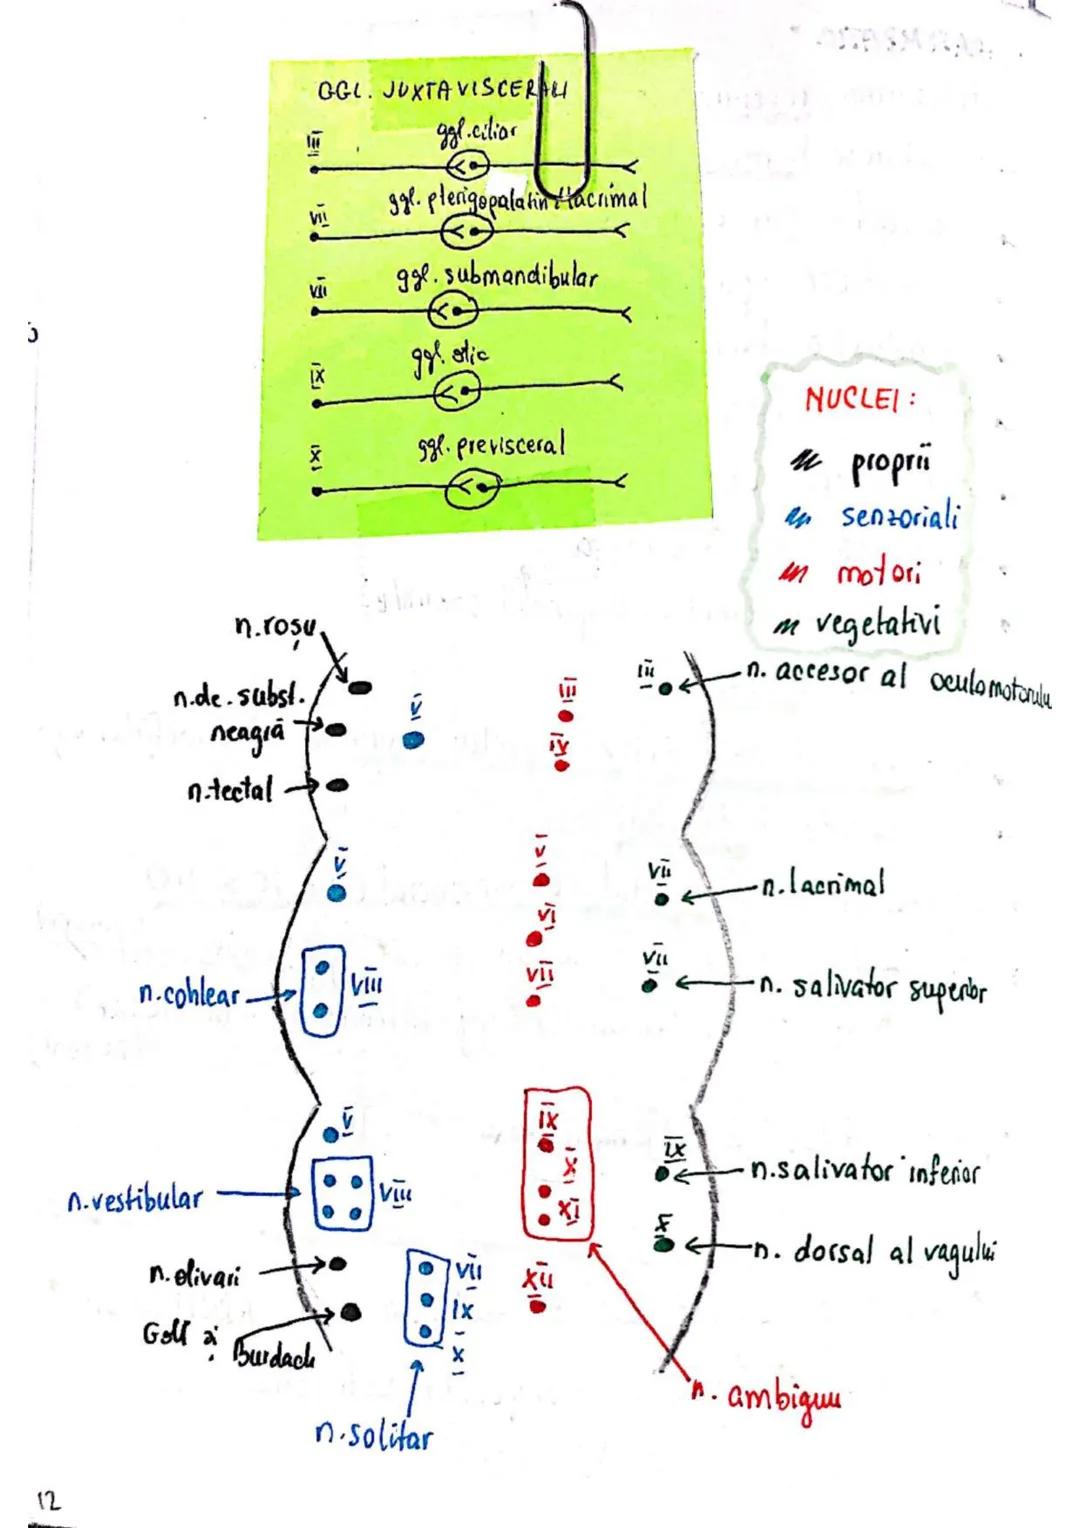 GGL. JUXTAVISCERALI
III ggl. ciliar
VII ggl. pterigopalatin lacrimal
VII ggl. submandibular
IX ggl. otic
X ggl. previsceral
NUCLEI:
proprii
senzoriali
motori
vegetativi
n. roșu
n. de. subst.
neagră
n. tectal
V
III
IV
III n. accesor al oculomotorulu
V
V
VI
VII
VII n. lacrimal
VII n. salivator superior
n. cohlear VIII
V
n. vestibular VIII
IX
X
XI
IX n. salivator inferior
X n. dorsal al vagului
n. olivari
Goll și Burdach
VII
IX
X
XII
n. ambiguu
n. solitar
12